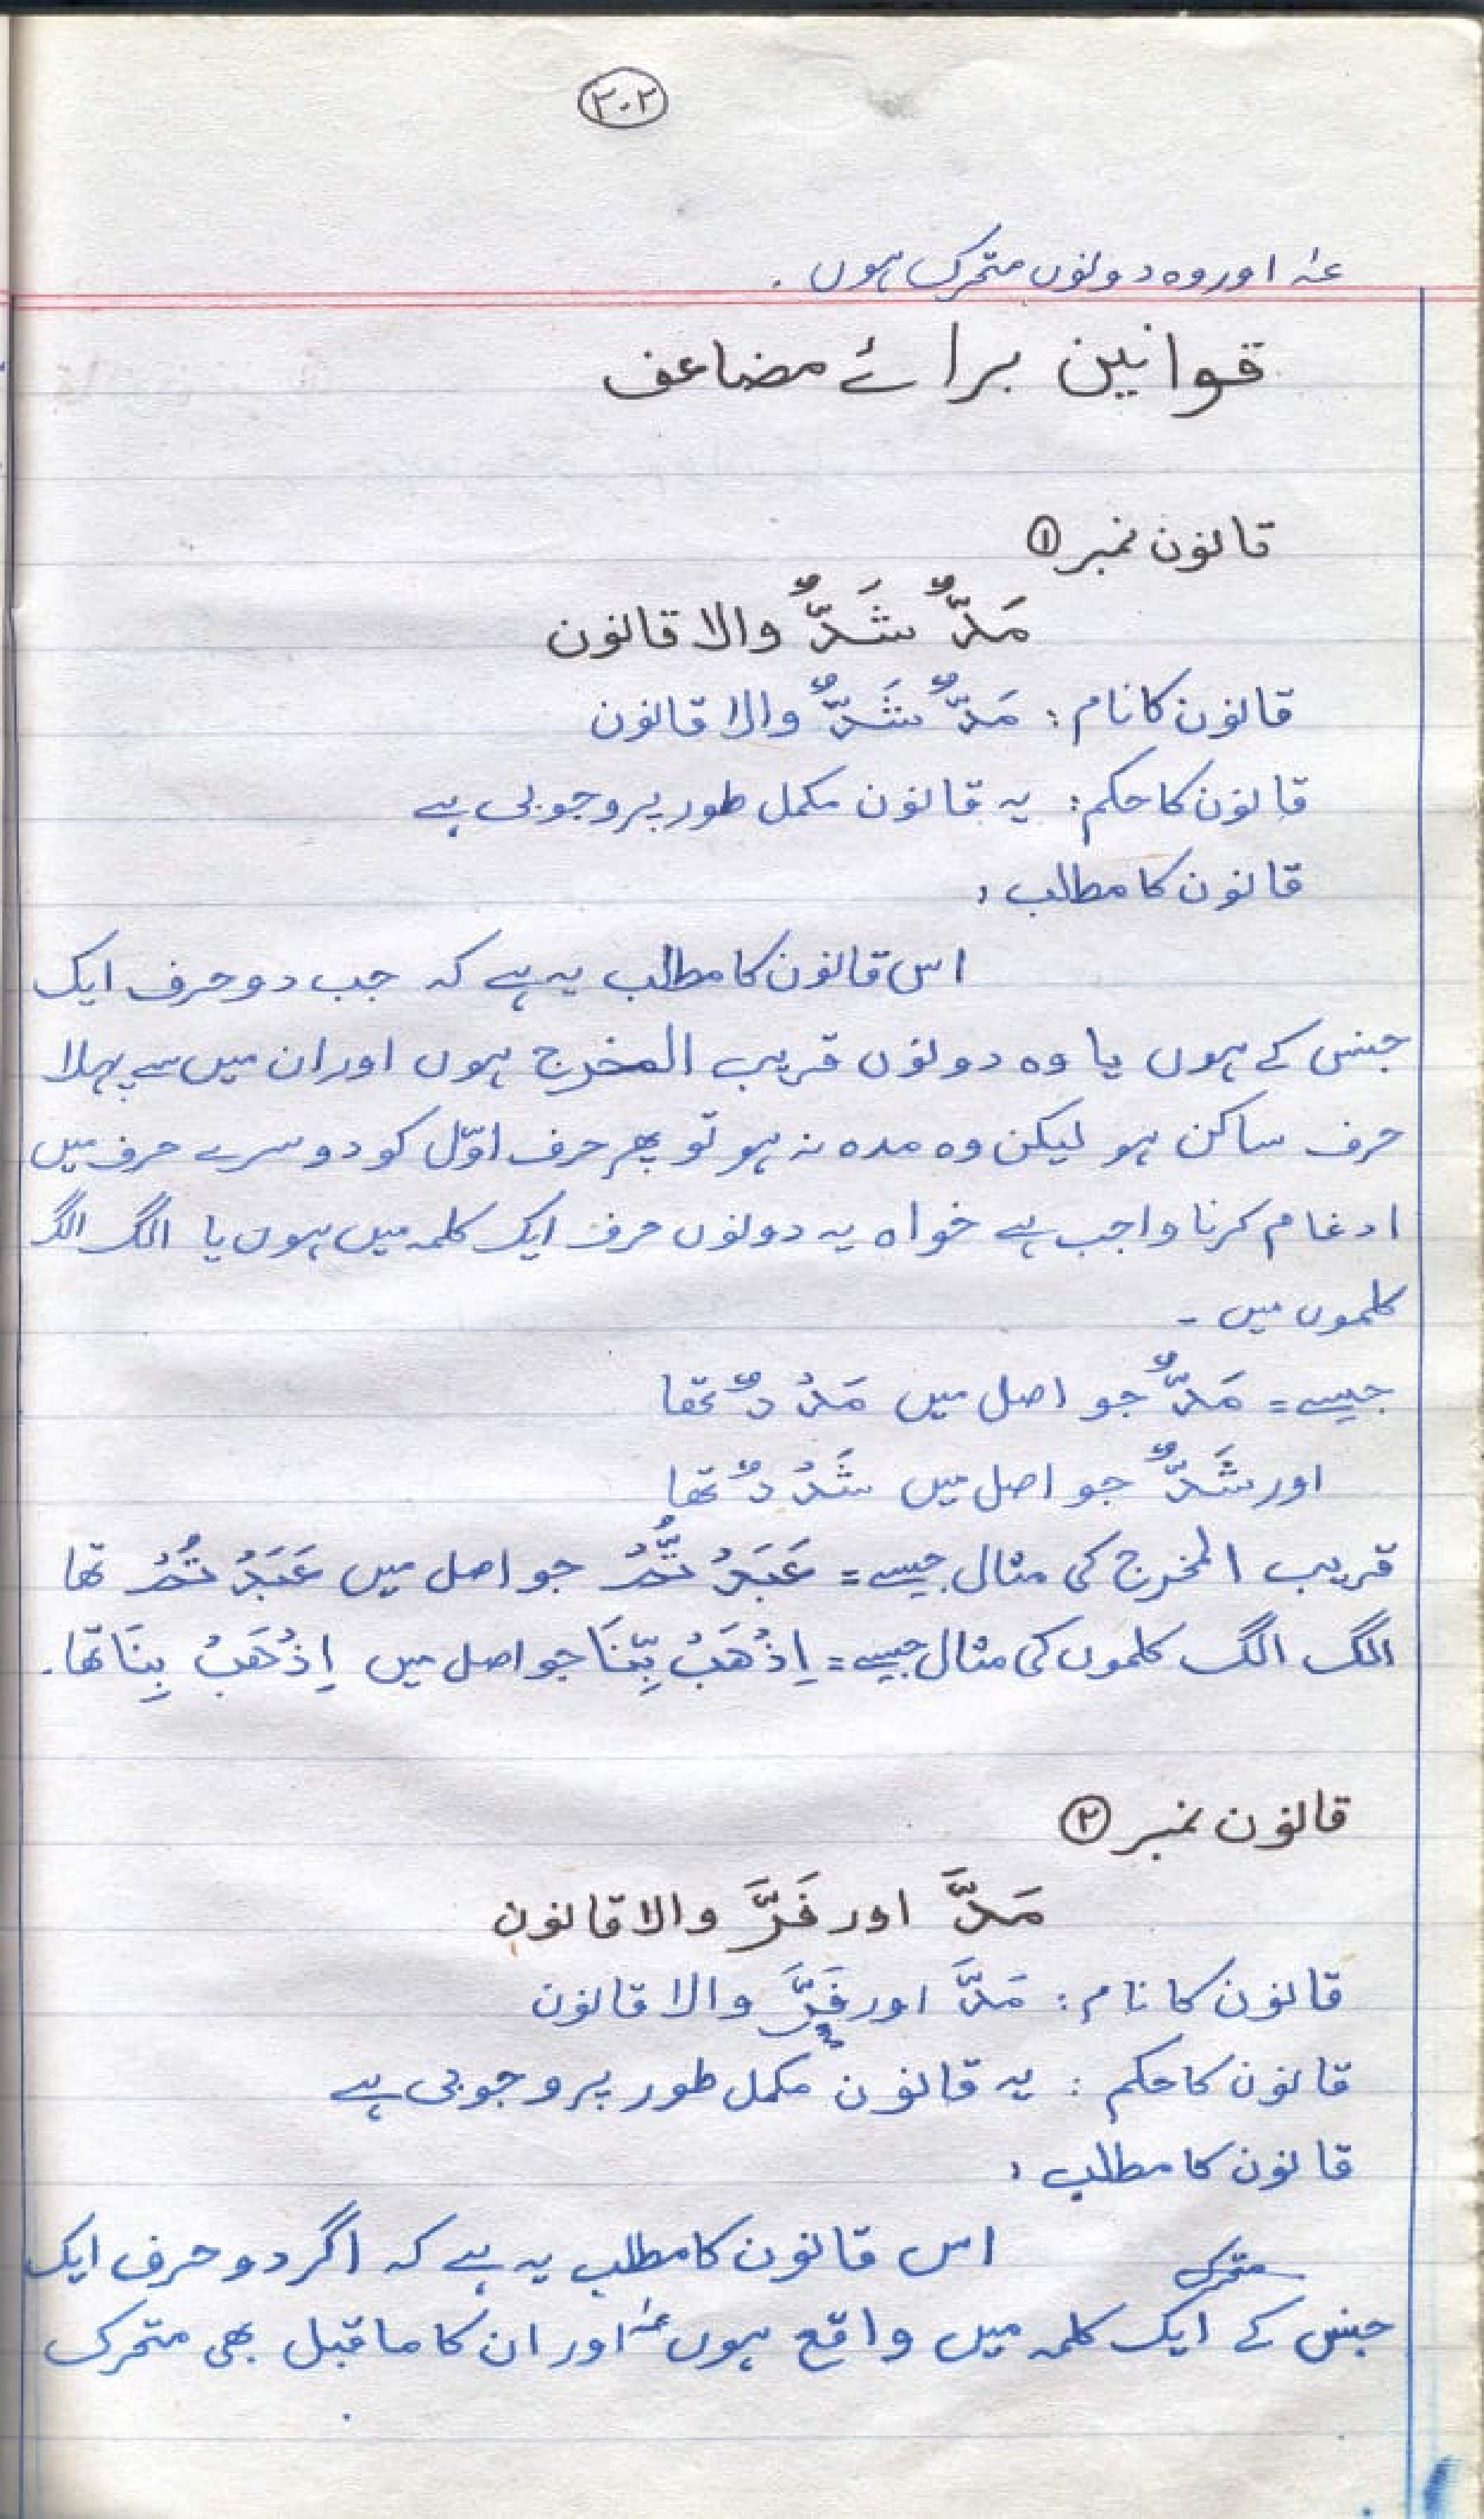 ۳۰۲
عہ اور وہ دونوں متحرک ہوں ۔
قوانین برائے مضاعف
قانون نمبر ①
مَدٌّ شَدٌّ والا قانون
قانون کا نام : مَدٌّ شَدٌّ والا قانون
قانون کا حکم : یہ قانون مکمل طور پر وجوبی ہے
قانون کا مطلب :
اس قانون کا مطلب یہ ہے کہ جب دو حرف ایک
جنس کے ہوں یا وہ دونوں قریب المخرج ہوں اور ان میں سے پہلا
حرف ساکن ہو لیکن وہ مدہ نہ ہو تو پھر حرف اوّل کو دوسرے حرف میں
ادغام کرنا واجب ہے خواہ یہ دونوں حرف ایک کلمہ میں ہوں یا الگ الگ
کلموں میں ۔
جیسے = مَدٌّ جو اصل میں مَدْدٌ تھا
اور شَدٌّ جو اصل میں شَدْدٌ تھا
قریب المخرج کی مثال جیسے = عَبَدْتُّمْ جو اصل میں عَبَدْتُمْ تھا
الگ الگ کلموں کی مثال جیسے = اِذْهَبْ بِّنَا جو اصل میں اِذْهَبْ بِنَا تھا ۔
قانون نمبر ②
مَدَّ اور فَرَّ والا قانون
قانون کا نام : مَدَّ اور فَرَّ والا قانون
قانون کا حکم : یہ قانون مکمل طور پر وجوبی ہے
قانون کا مطلب :
اس قانون کا مطلب یہ ہے کہ اگر دو حرف ایک
متحرک
جنس کے ایک کلمہ میں واقع ہوں عہ اور ان کا ماقبل بھی متحرک